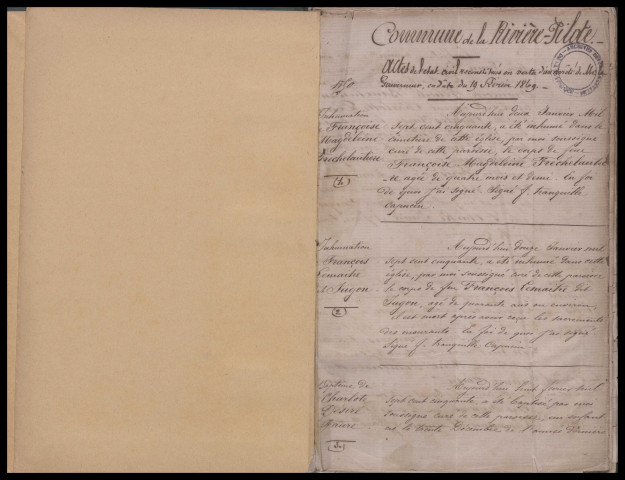 Commune de la Rivière-Pilote
Actes de l'état civil reconstitués en vertu d'un arrêté de M. le
Gouverneur, en date du 19 Février 1869.
1750
Inhumation
Françoise
Magdeleine
(1)
Aujourd'hui deux Janvier Mil
Sept cent cinquante, a été inhumé dans le
cimetière de cette église, par moi soussigné
curé de cette paroisse, le corps de feue
Françoise Magdeleine
agée de quatre mois et demi. En foi
de quoi j'ai signé. Signé f. tranquille
Capucin.
Inhumation
François
Lemaitre
(2)
Aujourd'hui Janvier mil
sept cent cinquante, a été inhumé dans cette
église, par moi soussigné curé de cette paroisse
le corps de feu François Lemaitre
agé de quarante ans ou environ
est mort après avoir reçu les sacrements
des mourants. En foi de quoi j'ai signé
Signé f. tranquille Capucin
Baptême de
Charlote
Désiré
(3)
Aujourd'hui huit Janvier mil
sept cent cinquante, a été baptisé par moi
soussigné curé de cette paroisse, un enfant
né le trente Décembre de l'année dernière